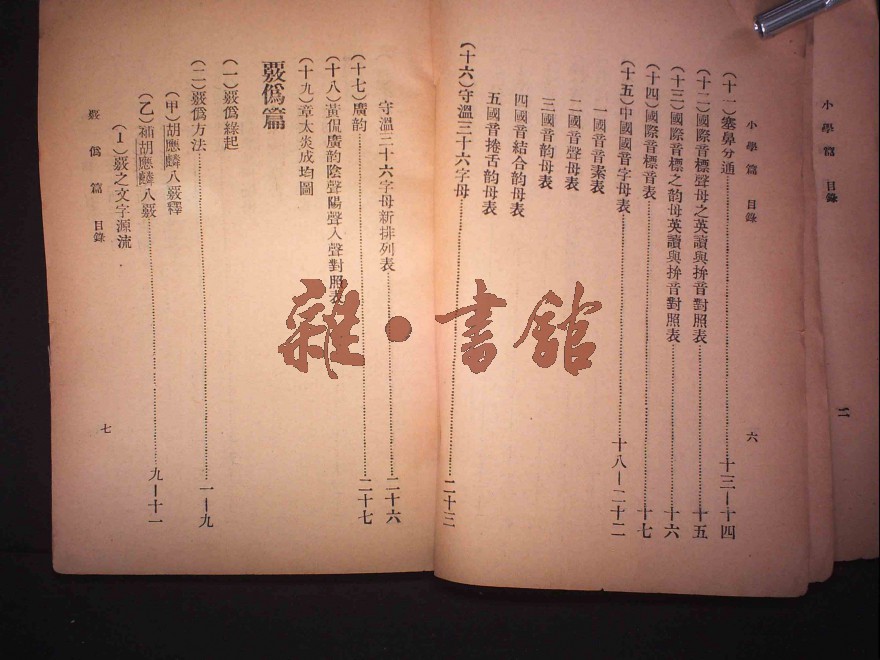 小學篇 目錄
六
(十一)塞鼻分通……十三—十四
(十二)國際音標聲母之英讀與拚音對照表……十五
(十三)國際音標之韵母英讀與拚音對照表……十六
(十四)國際音標音表……十七
(十五)中國國音字母表……十八—二十二
一國音音素表
二國音聲母表
三國音韵母表
四國音結合韵母表
五國音捲舌韵母表
(十六)守溫三十六字母……二十三
守溫三十六字母新排列表……二十六
(十七)廣韵……二十七
(十八)黃侃廣韵陰聲陽聲入聲對照表
(十九)章太炎成均圖
覈僞篇
(一)覈僞緣起
(二)覈僞方法……一—九
(甲)胡應麟八覈釋
(乙)補胡應麟八覈……九—十一
(1)覈之文字源流
覈僞篇 目錄
七
小學篇 目錄
二
雜·書館